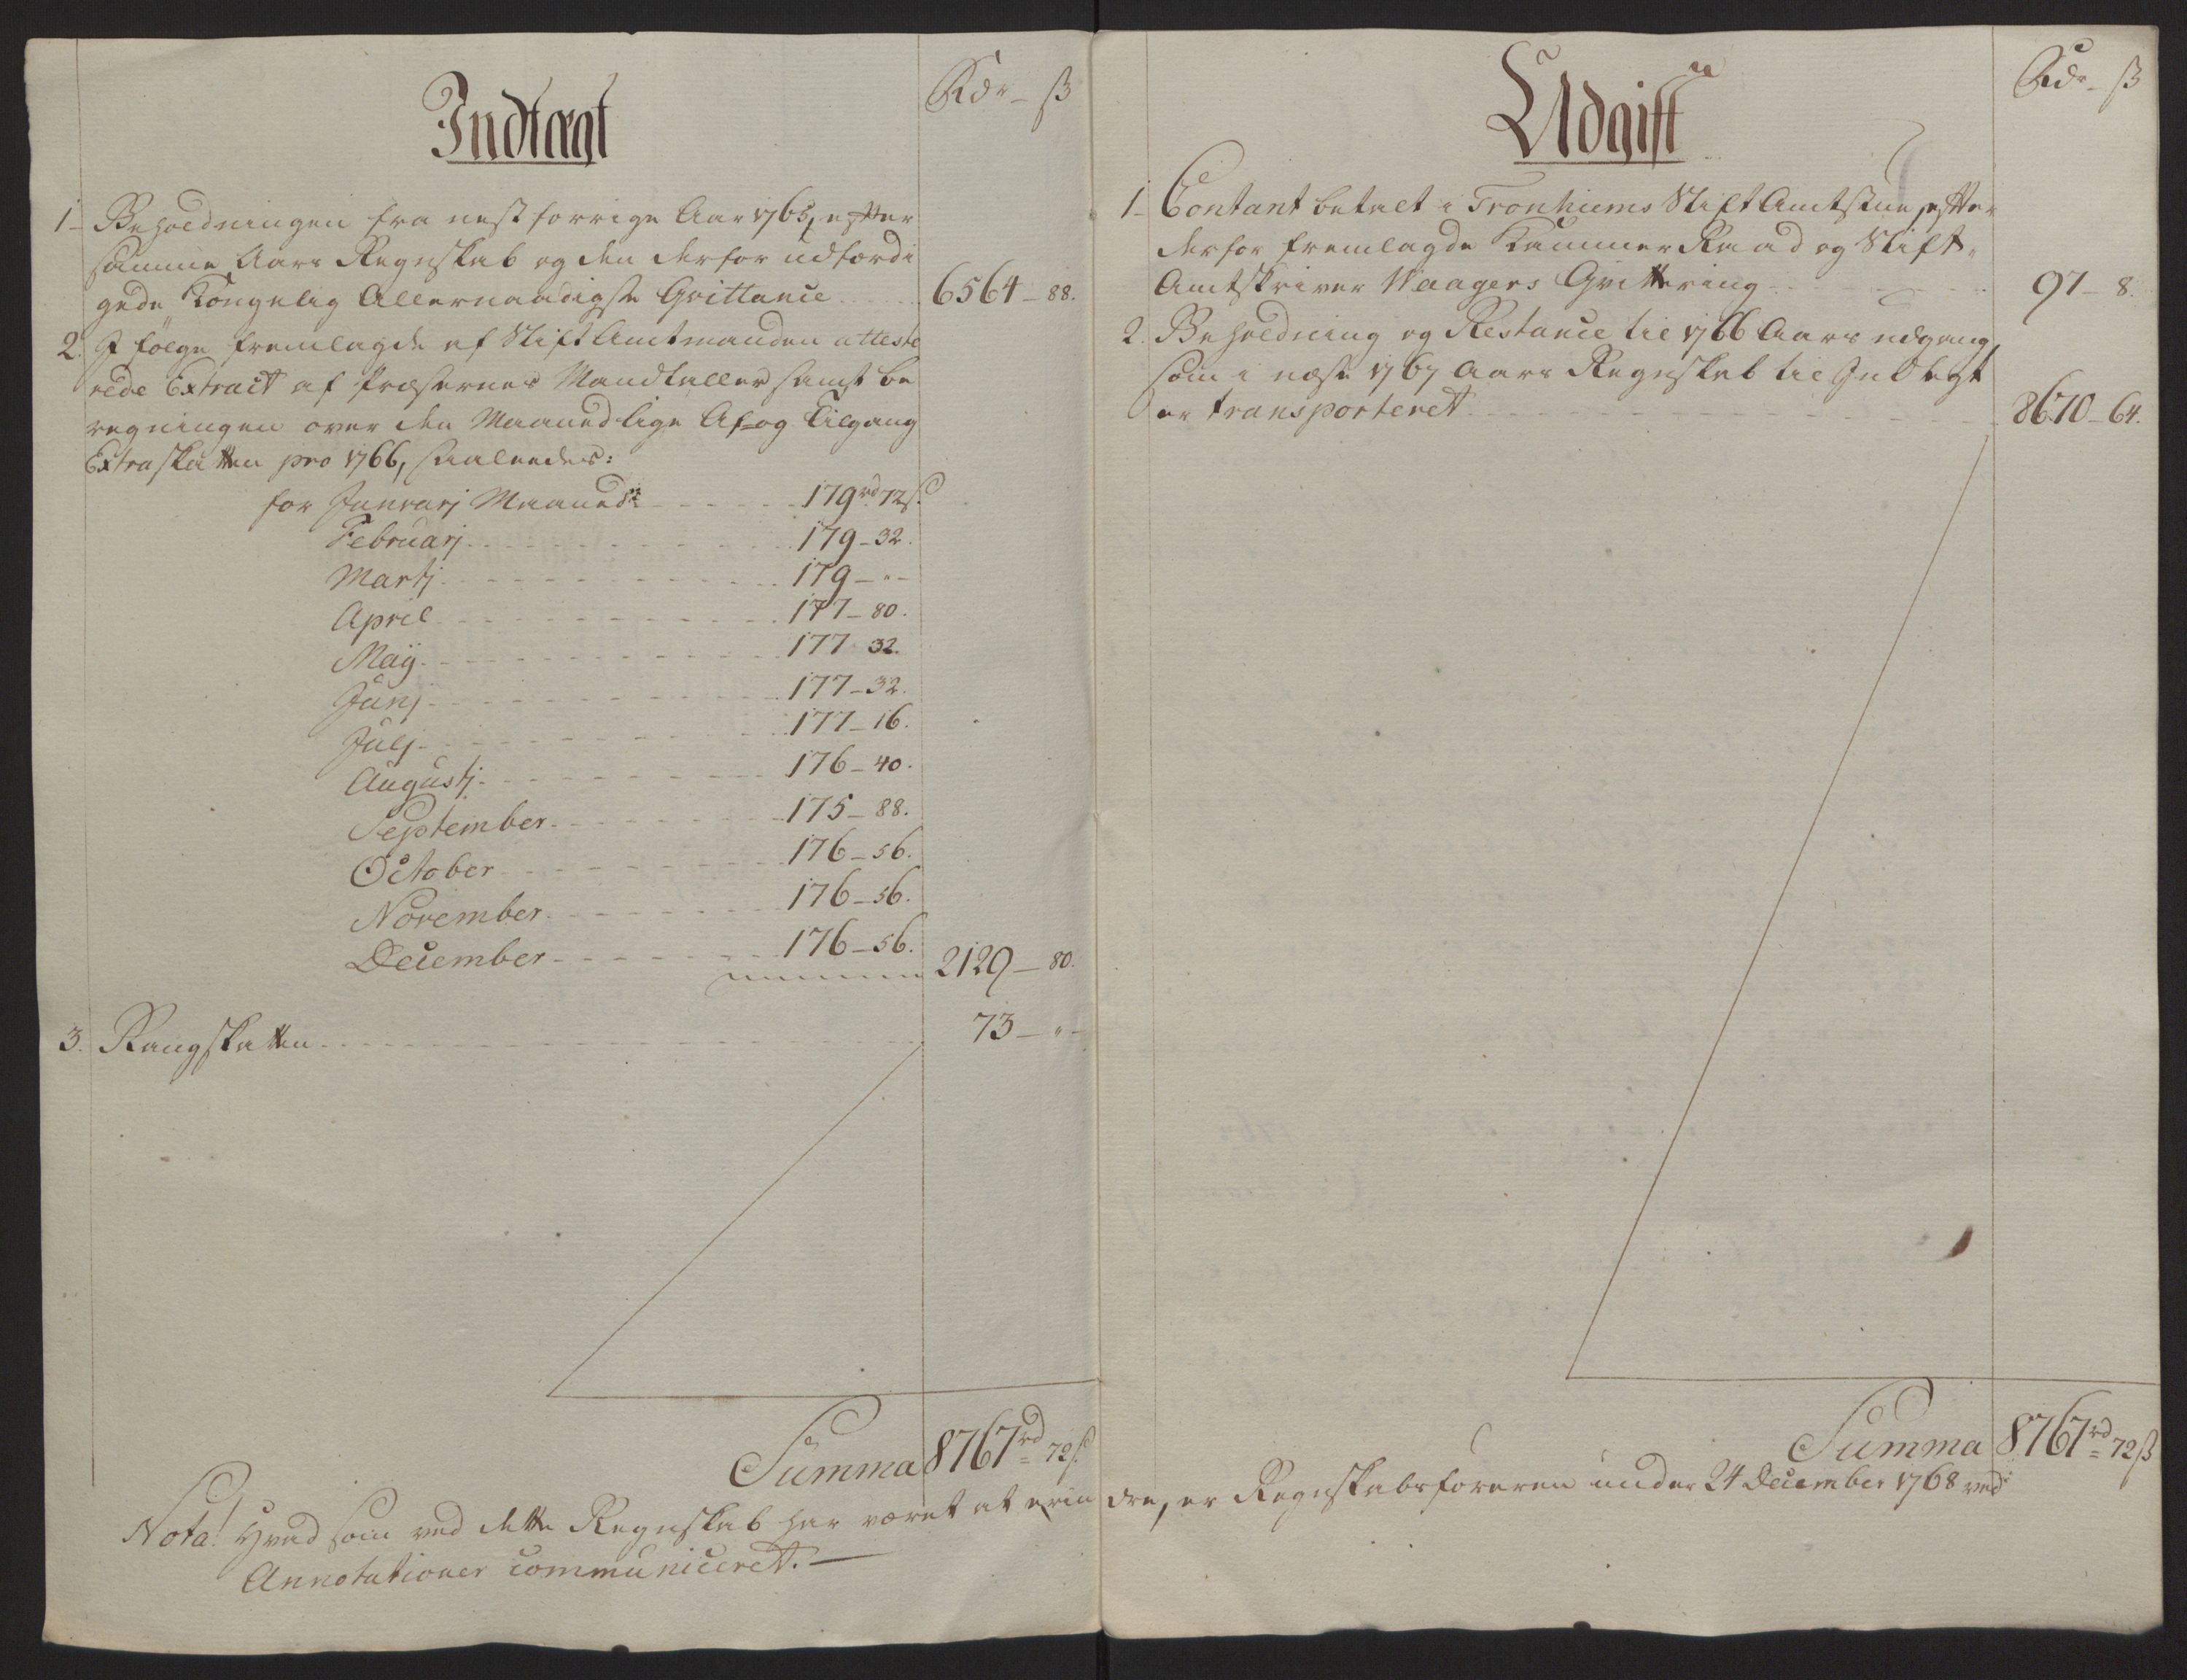 Indtægt
Rdr – ß
1 – Beholdningen fra nest forrige Aar 1765, efter
samme Aars Regnskab og den derfor udfærdi
gede Kongelig Allernaadigste Qvittance 6564 – 88.
2. I følge fremlagde af Stift Amtmanden atteste
rede Extract af Præsternes Mandtaller samt be
regningen over den Maanedlige Af- og Tilgang
Extraskatten pro 1766, saaledes:
for Januarj Maaned 179 rd 72 s.
Februarj 179 – 32.
Martj 179 – " –
April 177 – 80.
Maÿ 177 32.
Junj 177 – 32.
Julj 177 – 16.
Augustj 176 – 40.
September 175 – 88.
October 176 – 56.
November 176 – 56.
December 176 – 56. 2129 – 80.
3. Rangskatten 73 – " –
Summa 8767 rd 72 s.
Udgift
Rdr – ß
1 – Contant betalt i Tronhiems Stift Amtstue, efter
derfor fremlagde Kammer Raad og Stift-
Amtskriver Waagers Qvittering 97 – 8.
2. Beholdning og Restance til 1766 Aars udgang,
som i næste 1767 Aars Regnskab til Indtegt
er transporteret 8670 – 64.
Summa 8767 rd 72 ß
Nota! Hvad som ved dette Regnskab har været at erindre, er Regnskabsføreren under 24 December 1768 ved
Annotationer communiceret. –